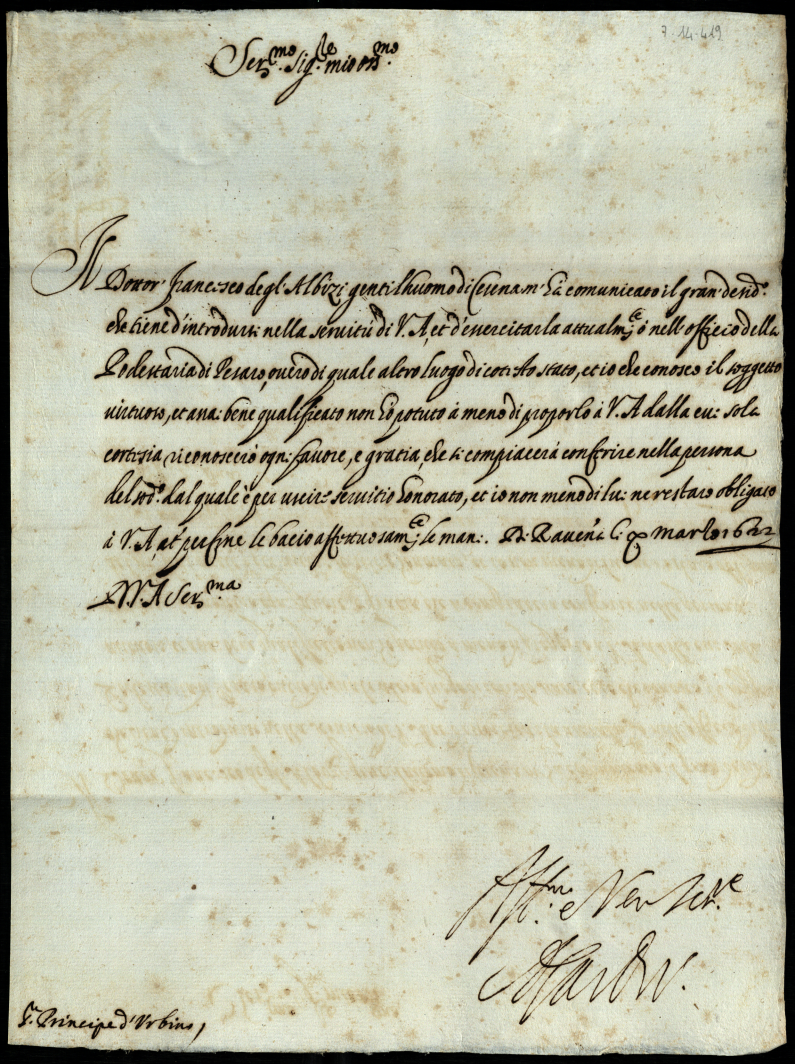 7-14-419
Ser.mo Sig.re mio oss.mo
Il Dottor Francesco degl'Albizi gentilhuomo di Cesena m'hà comunicato il gran desid.o
che tiene d'introdursi nella servitù di V. A, et d'essercitarla attualm.te ò nell'officio della
Podestaria di Pesaro, overo di quale altro luogo di cotesto stato, et io che conosco il soggetto
virtuoso, et assai bene qualificato non hò potuto à meno di proporlo à V. A dalla cui sola
cortesia riconoscerò ogni favore, e gratia, che si compiacerà conferire nella persona
del sod.o dal quale è per uscire servitio honorato, et io non meno di lui ne restarò obligato
à V. A, et per fine le bacio affettuosam.te le mani. Di Ravenà li x Marzo 1622
Di V. A Ser.ma
Aff.mo e Ser.re
S.r Principe d'Urbino,